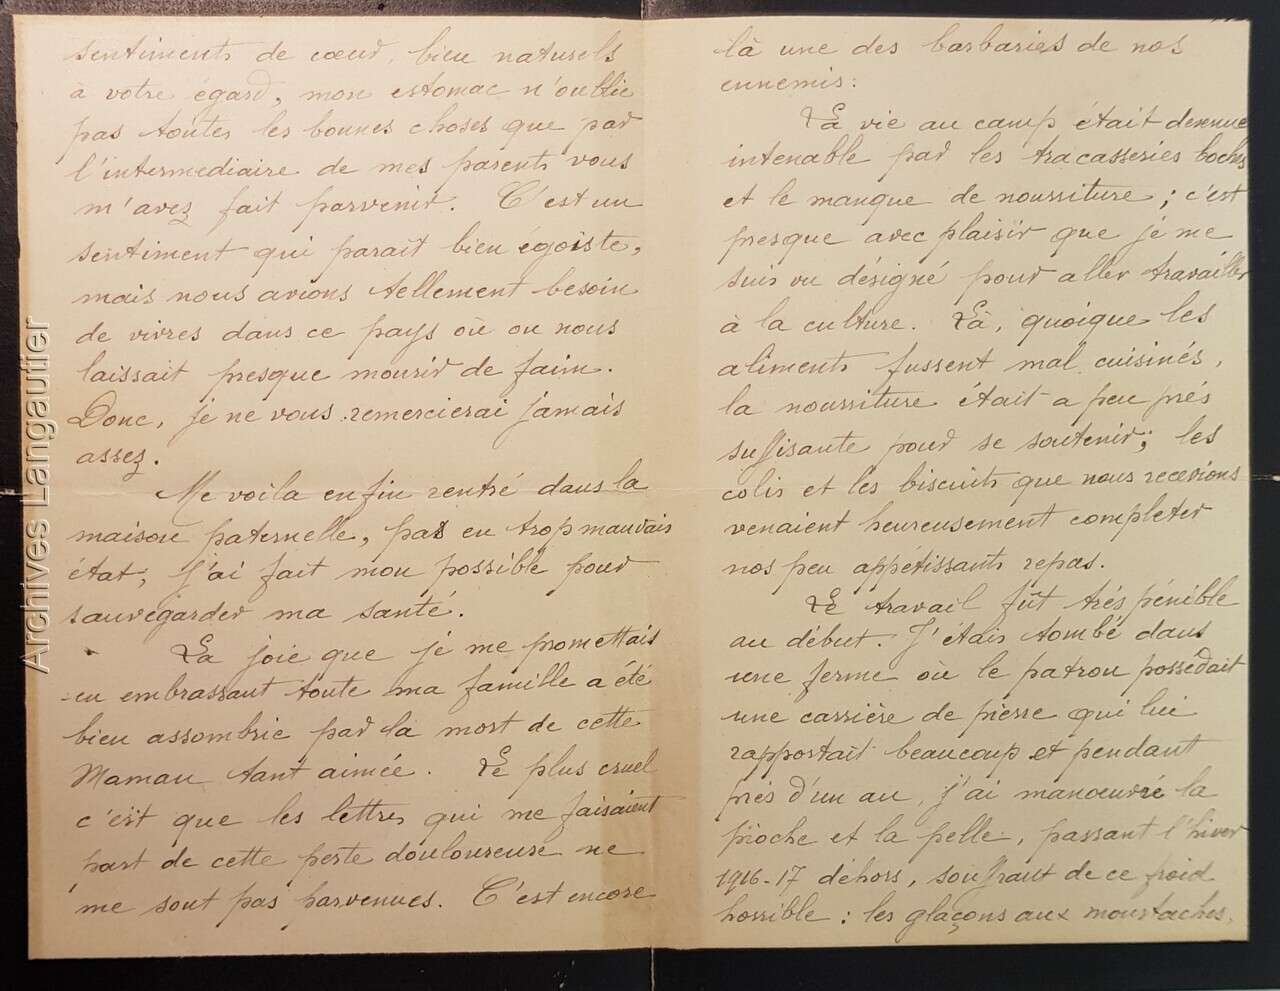 sentiments de cœur, bien naturels
à votre égard, mon estomac n'oublie
pas toutes les bonnes choses que par
l'intermediaire de mes parents vous
m'avez fait parvenir. C'est un
sentiment qui parait bien égoïste,
mais nous avions tellement besoin
de vivres dans ce pays où on nous
laissait presque mourir de faim.
Donc, je ne vous remercierai jamais
assez.
Me voila enfin rentré dans la
maison paternelle, pas en trop mauvais
état; j'ai fait mon possible pour
sauvegarder ma santé.
La joie que je me promettais
en embrassant toute ma famille a été
bien assombrie par la mort de cette
Maman tant aimée. Le plus cruel
c'est que les lettres qui me faisaient
part de cette perte douloureuse ne
me sont pas parvenues. C'est encore
là une des barbaries de nos
ennemis:
La vie au camp était devenue
intenable par les tracasseries boches
et le manque de nourriture; c'est
presque avec plaisir que je me
suis vu désigné pour aller travailler
à la culture. Là, quoique les
aliments fussent mal cuisinés,
la nourriture était a peu prés
suffisante pour se soutenir; les
colis et les biscuits que nous recevions
venaient heureusement completer
nos peu appétissants repas.
Le travail fût trés pénible
au début. J'étais tombé dans
une ferme où le patron possédait
une carrière de pierre qui lui
rapportait beaucoup et pendant
prés d'un an, j'ai manœuvré la
pioche et la pelle, passant l'hiver
1916-17 déhors, souffrant de ce froid
horrible: les glaçons aux moustaches,
Archives Langautier